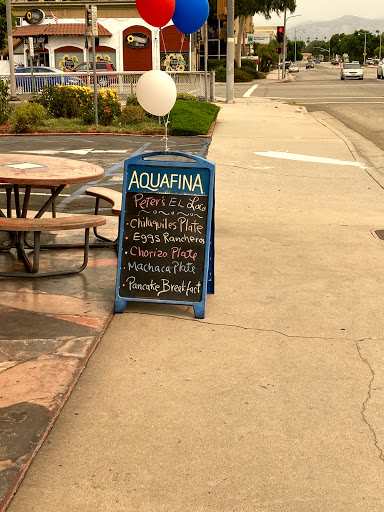 AQUAFINA
Peter's EL Loco
• Chilaquiles Plate
• Eggs Rancheros
• Chorizo Plate
Machaca Plate
• Pancake Breakfast